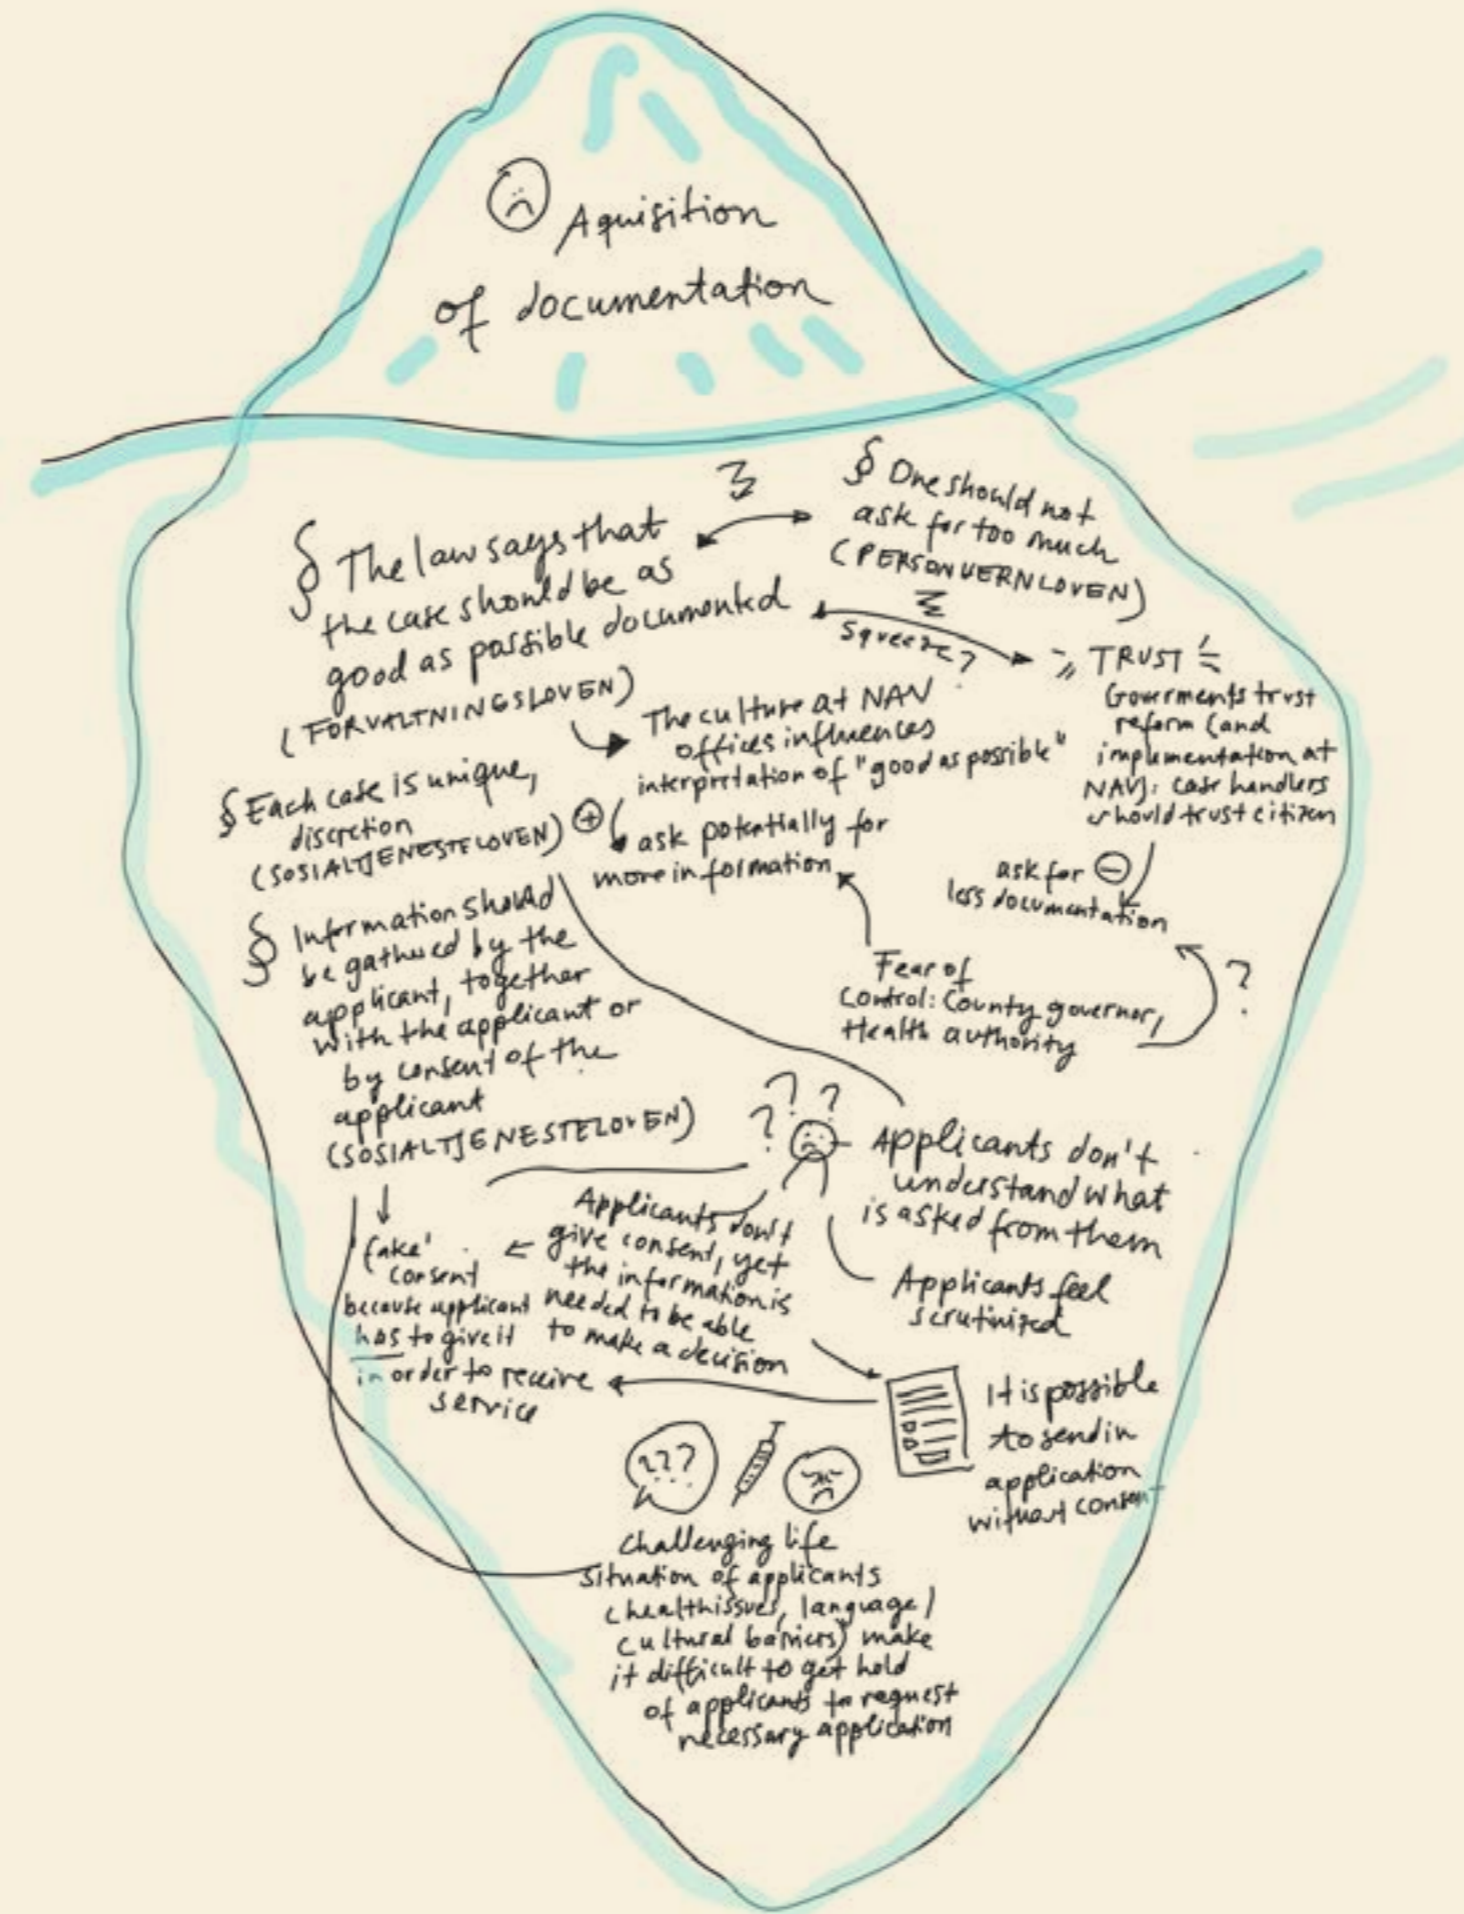 Aquisition
of documentation
§ The law says that
the case should be as
good as possible documented
(FORVALTNINGSLOVEN)
§ One should not
ask for too much
(PERSONVERNLOVEN)
Squeeze?
TRUST
Goverments trust
reform (and
implementation at
NAV): case handlers
should trust citizen
The culture at NAV
offices influences
interpretation of "good as possible"
+
ask potentially for
more information
§ Each case is unique,
discretion
(SOSIALTJENESTELOVEN)
ask for -
less documentation
Fear of
control: County governor,
Health authority
?
§ Information should
be gathered by the
applicant, together
with the applicant or
by consent of the
applicant
(SOSIALTJENESTELOVEN)
? ? ?
Applicants don't
understand what
is asked from them
Applicants feel
scrutinized
Applicants don't
give consent, yet
the information is
needed to be able
to make a decision
'fake'
consent
because applicant
has to give it
in order to receive
service
It is possible
to send in
application
without consent
???
Challenging life
situation of applicants
(health issues, language/
cultural barriers) make
it difficult to get hold
of applicants to request
necessary application